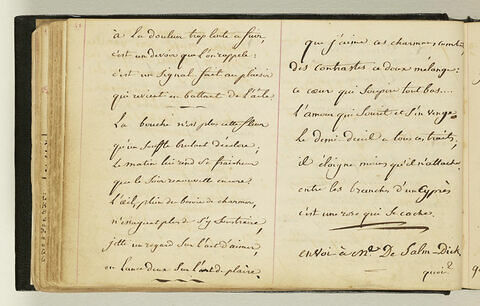 à la douleur trop lente à fuir,
c'est un devoir que l'on rappele:
c'est un signal fait au plaisir
qui revient en battant de l'aile.
La bouche n'est plus cette fleur
qu'un souffle brulant décolore;
Le matin lui rend sa fraicheur
que le soir renouvelle encore.
L'œil, plein de besoin de charmer,
n'enseignant plus à s'y soustraire,
jette un regard sur l'art d'aimer,
ou lance deux sur l'art de plaire.
que j'aime ces charmans combats
des contrastes ce doux mélange:
ce cœur qui soupire tout bas...
l'amour qui sourit et s'en venge.
Le demi-deuil a tous ces traits,
il éloigne moins qu'il n'attache.
entre les branches d'un Cyprès
c'est une rose qui se cache.
envoi à Mme De Salm-Dick
quoi?